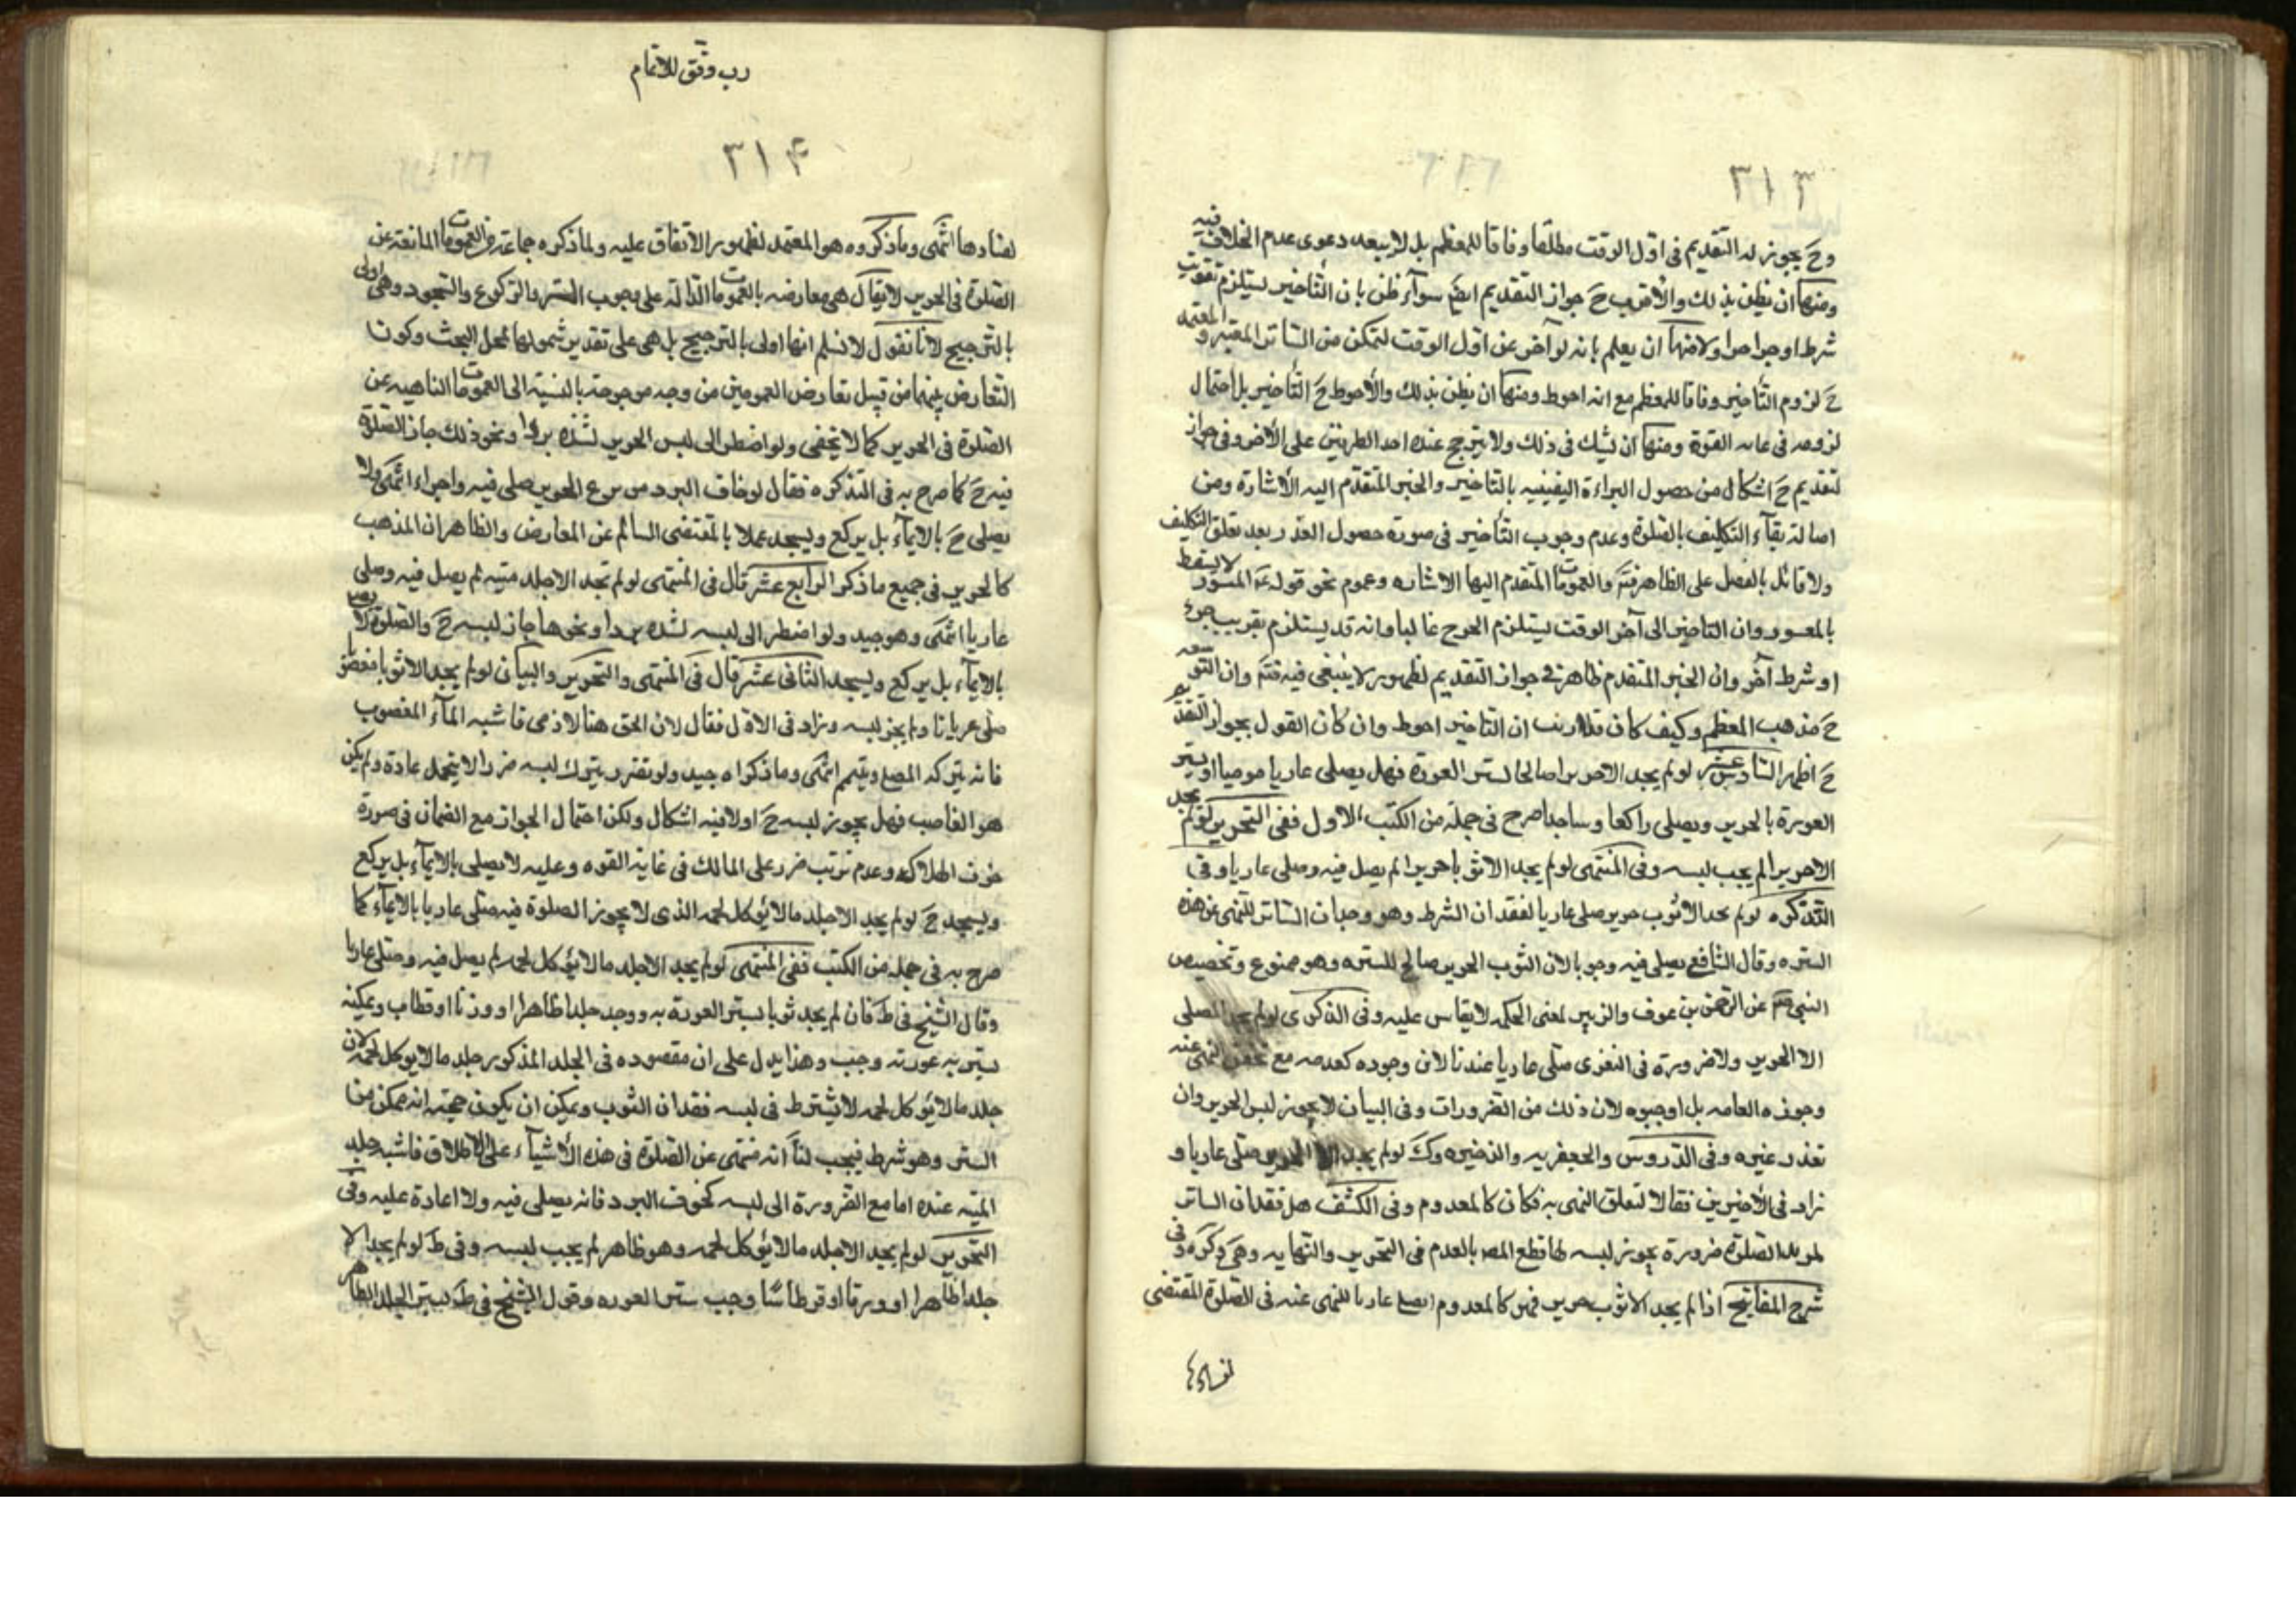 ٣١٣
وح يجوز له التقديم فى اول الوقت مطلقا وفاقا للمعظم بل لا يبعد دعوى عدم الخلاف فيه
ومنها ان يظن بذلك والأقرب ح جواز التقديم ايضم سواء ظن بان التأخير يستلزم تفويت
شرط او جزء اخر اولا ومنها ان يعلم بانه لو آخر عن اول الوقت لتمكن من الساتر المعتبر و
ح لزوم التأخير وفاقا للمعظم مع انه احوط ومنها ان يظن بذلك والأحوط ح التأخير بل احتمال
لزومه فى غايه القوة ومنها ان يشك فى ذلك ولا يترجح عنده احد الطرفين على الأخر وفى جواز
لتقديم ح اشكال من حصول البراءة اليقينيه بالتاخير والخبر المتقدم اليه الأشارة ومن
اصالة بقآء التكليف بالصلوة وعدم وجوب التأخير فى صورة حصول العذر بعد تعلق التكليف
ولا قائل بالفصل على الظاهر فتم والعمومات المتقدم اليها الاشاره وعموم نحو قوله ع الميسور لا يسقط
بالمعسور وان التاخير الى آخر الوقت يستلزم الحرج غالبا وانه قد يستلزم تفويت جزء
او شرط آخر وان الخبر المتقدم ظاهر فى جواز التقديم لظهور لا ينبغى فيه فتم وان التوسعه
ح مذهب المعظم وكيف كان فلا ريب ان التاخير احوط وان كان القول بجواز التقديم
ح اظهر السادس عشر لو لم يجد الا حريرا صالحا لستر العورة فهل يصلى عاريا موميا او يستر
العورة بالحرير ويصلى راكعا وساجدا صرح فى جملة من الكتب الاول ففى التحرير لو لم يجد
الا حريرا لم يجب لبسه وفى المنتهى لو لم يجد الا ثوبا حريرا لم يصل فيه وصلى عاريا وفى
التذكره لو لم يجد الا ثوب حرير صلى عاريا لفقدان الشرط وهو وجدان الساتر للنهى عن هذه
الستره وقال الشافعى يصلى فيه وجوبا لان الثوب الحرير صالح للستره وهو ممنوع وتخصيص
النبى صم عن الرحمن بن عوف والزبير لمعنى الحكه لا يقاس عليه وفى الذكرى لو لم يجد المصلى
الا الحرير ولا ضرورة فى التعرى صلى عاريا عندنا لان وجوده كعدمه مع تحقق النهى عنه
وجوزه العامه بل اوجبوه لان ذلك من الضرورات وفى البيان لا يجوز لبس الحرير وان
تعذر غيره وفى الدروس والجعفريه والذخيره وك لو لم يجد الا الحرير صلى عاريا و
زاد فى الأخيرين فقالا لتعلق النهى به فكان كالمعدوم وفى الكشف هل فقدان الساتر
لمريد الصلوة ضرورة يجوز لبسه لها قطع المصر بالعدم فى التحرير والنهايه وهى وكره وفى
شرح المفاتيح اذا لم يجد الا ثوب حرير فهو كالمعدوم يصلى عاريا للنهى عنه فى الصلوة المقتضى
لفسادها
رب وفق للاتمام
٣١۴
لفسادها انتهى وما ذكروه هو المعتمد لظهور الأتفاق عليه ولما ذكره جماعة من العمومات المانعة عن
الصلوة فى الحرير لا يقال هى معارضه بالعمومات الدالة على وجوب الستر والركوع والسجود وهى اولى
بالترجيح لانا نقول لا نسلم انها اولى بالترجيح بل هى على تقدير شمولها لمحل البحث وكون
التعارض بينهما من قبيل تعارض العمومين من وجه مرجوحة بالنسبة الى العمومات الناهيه عن
الصلوة فى الحرير كما لا يخفى ولو اضطر الى لبس الحرير لشدة برد او نحو ذلك جاز الصلوة
فيه ح كما صرح به فى التذكره فقال لو خاف البرد من نزع الحرير صلى فيه واجزاء انتهى ولا
يصلى ح بالايمآء بل يركع ويسجد عملا بالمقتضى السالم عن المعارض والظاهر ان المذهب
كالحرير فى جميع ما ذكر الرابع عشر قال فى المنتهى لو لم تجد الا جلد ميته لم يصل فيه وصلى
عاريا انتهى وهو جيد ولو اضطر الى لبسه لشدة برد او نحوها جاز لبسه ح والصلوة لا يصح
بالايمآء بل يركع ويسجد الثانى عشر قال فى المنتهى والتحرير والبيان لو لم يجد الا ثوبا مغصوبا
صلى عريانا ولم يجز لبسه وزاد فى الاول فقال لان الحق هنا لادمى فاشبه المآء المغصوب
فانه يتركه المصلى ويتيمم انتهى وما ذكراه جيد ولو تضرر بترك لبسه ضررا لا يتحمل عادة ولم يكن
هو الغاصب فهل يجوز لبسه ح اولا فيه اشكال ولكن احتمال الجواز مع الضمان فى صورة
خوف الهلاك وعدم ترتب ضرر على المالك فى غاية القوه وعليه لا يصلى بالايمآء بل يركع
ويسجد ح لو لم يجد الا جلد ما لا يؤكل لحمه الذى لا يجوز الصلوة فيه صلى عاريا بالايمآء كما
صرح به فى جمله من الكتب ففى المنتهى لو لم يجد الا جلد ما لا يؤكل لحمه لم يصل فيه وصلى عاريا
وقال الشيخ فى ط فان لم يجد ثوبا يستر العورة به ووجد جلدا طاهرا او ورقا او قطاب ويمكنه
يستر به عورته وجب وهذا يدل على ان مقصوده فى الجلد المذكور جلد ما لا يوكل لحمه لان
جلد ما لا يؤكل لحمه لا يشترط فى لبسه فقدان الثوب ويمكن ان يكون حجته انه ممكن من
الستر وهو شرط فيجب لنا انه منتهى عن الصلوة فى هذه الأشيآء على الاطلاق فاشبه جلد
الميته عنده اما مع الضرورة الى لبسه كخوف البرد فانه يصلى فيه ولا اعادة عليه وفى
التحرير لو لم يجد الا جلد ما لا يؤكل لحمه وهو طاهر لم يجب لبسه وفى ط لو لم يجد الا
جلدا طاهرا او ورقا او قرطاسا وجب ستر العوره وقول الشيخ فى ط يستر الجلد الطاهر